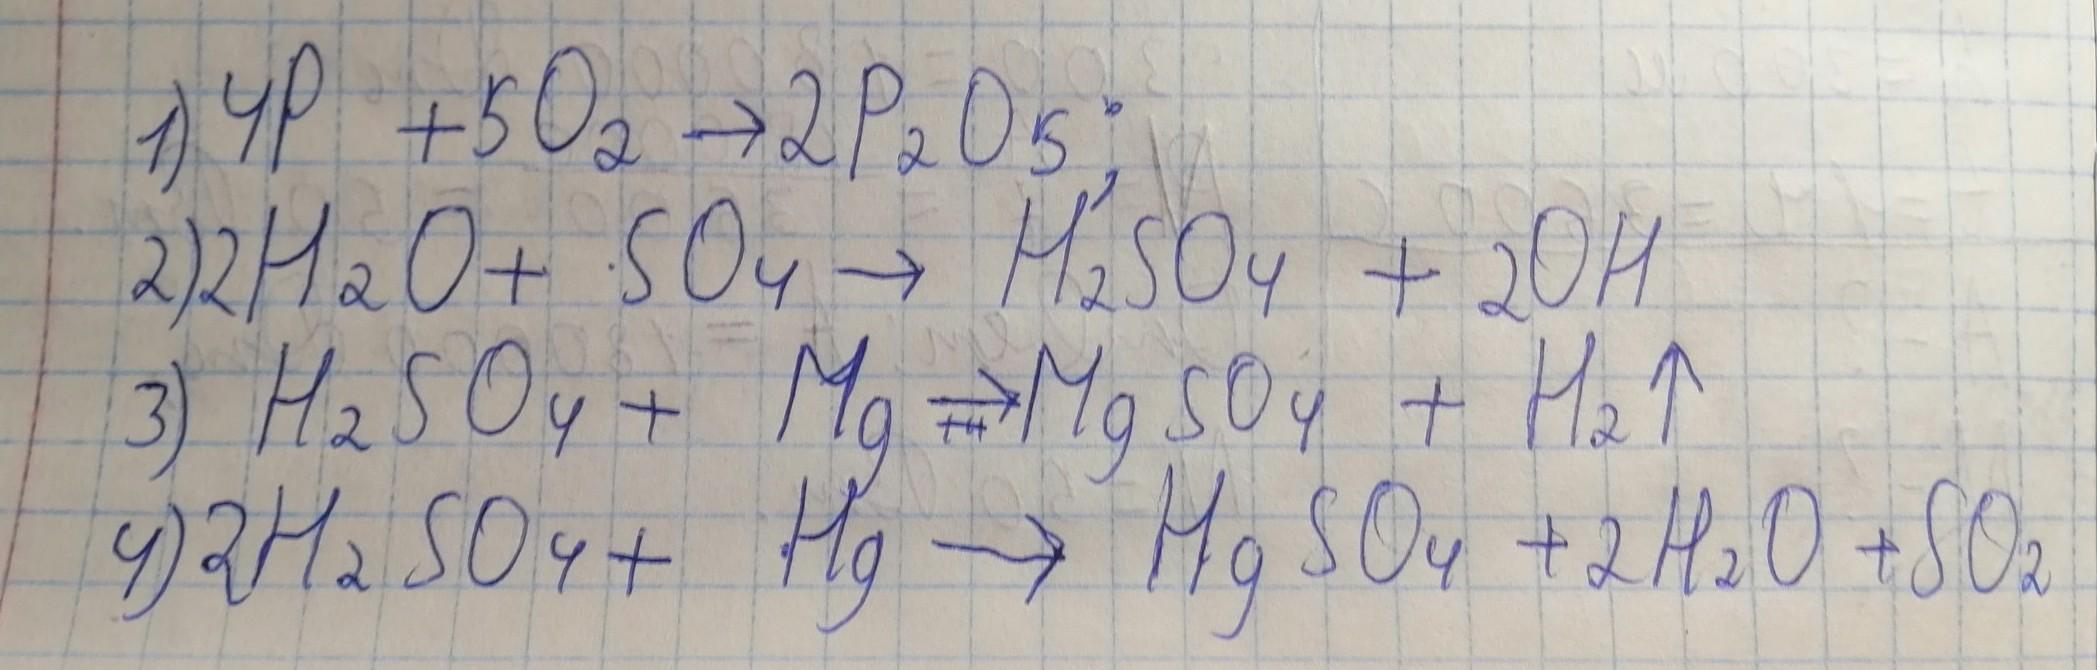 1) 4P + 5O₂ → 2P₂O₅;
2) 2H₂O + SO₄ → H₂SO₄ + 2OH
3) H₂SO₄ + Mg → MgSO₄ + H₂↑
4) 2H₂SO₄ + Hg → HgSO₄ + 2H₂O + SO₂